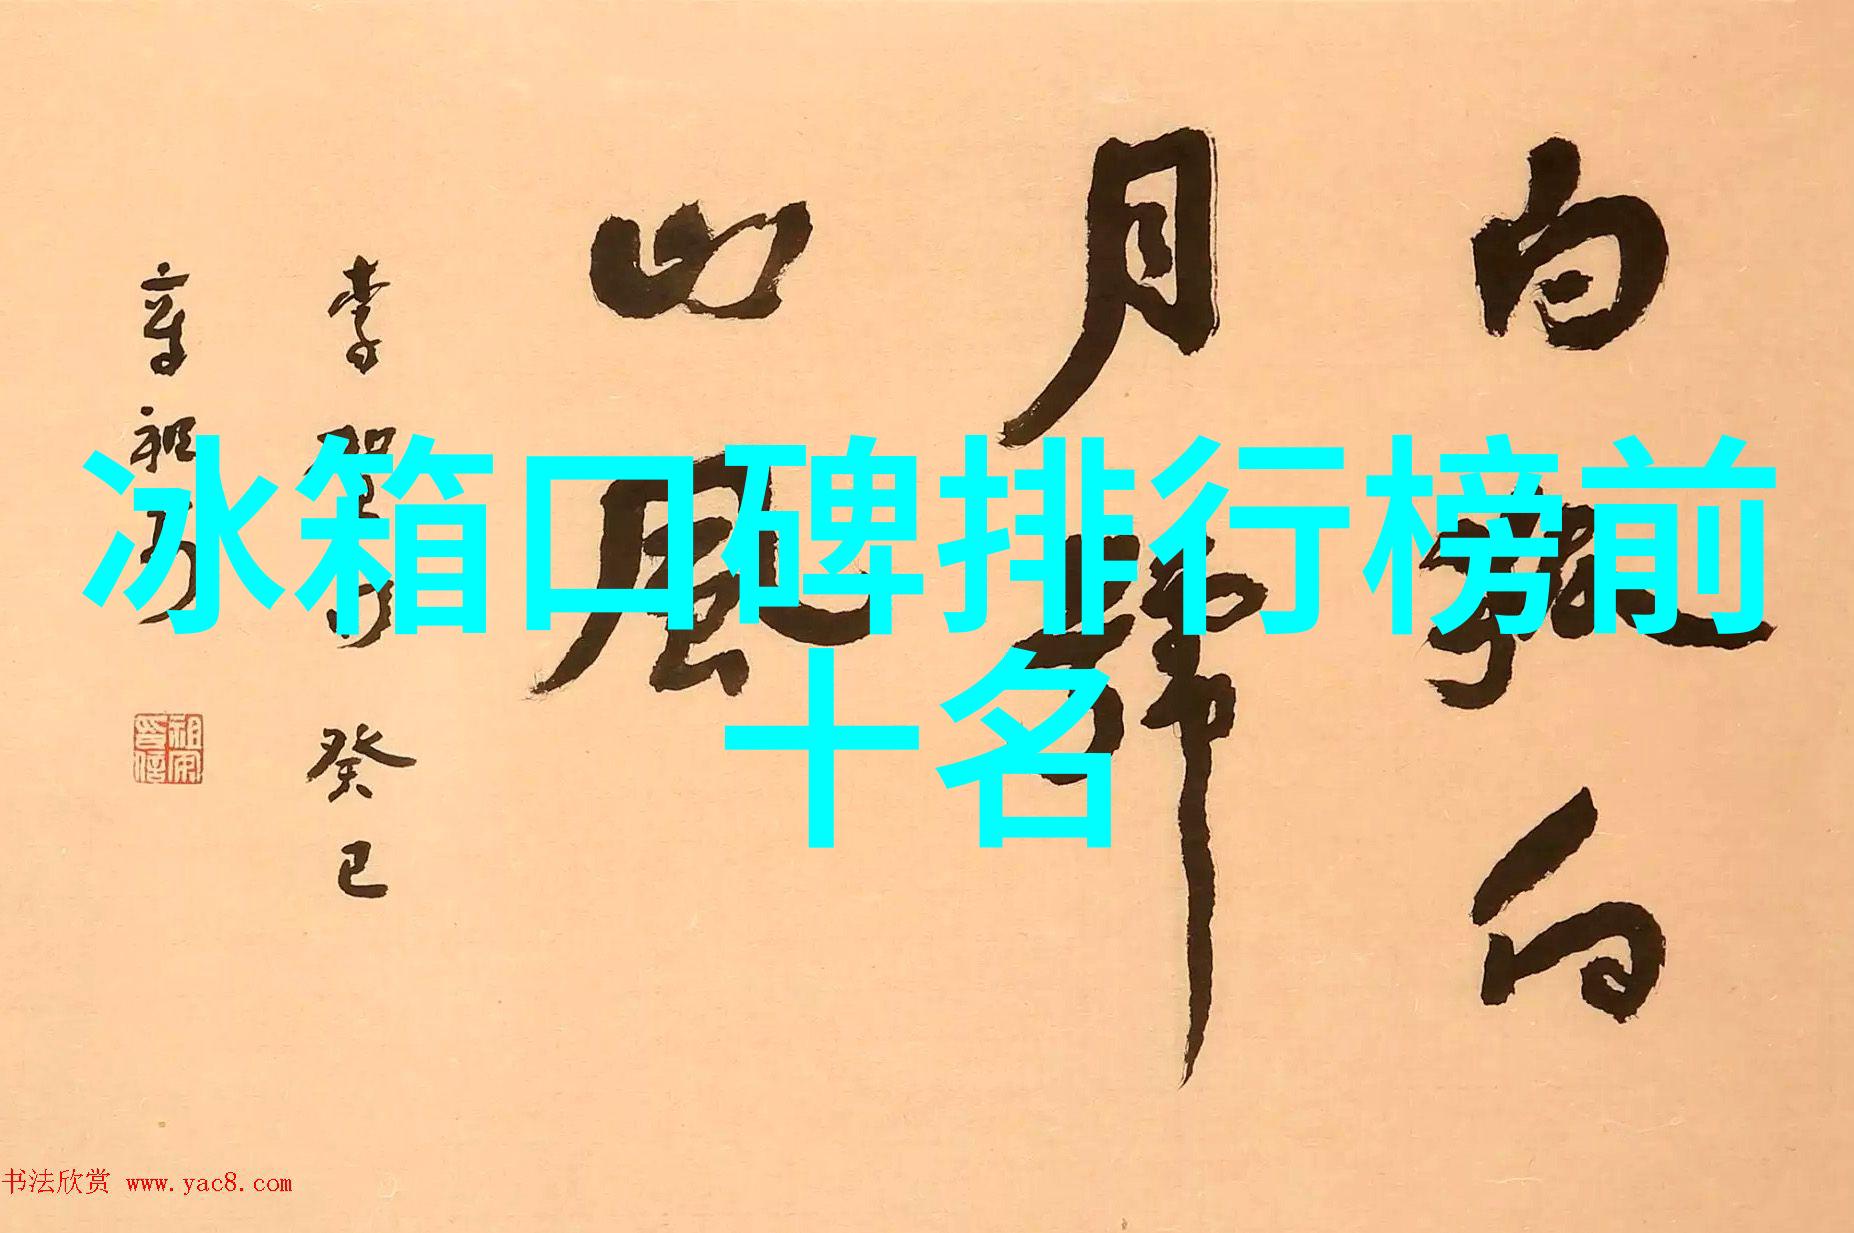 冰箱口碑排行榜前
十名
白 白
月
山風
李 癸巳
章祖
书法欣赏 www.yac8.com